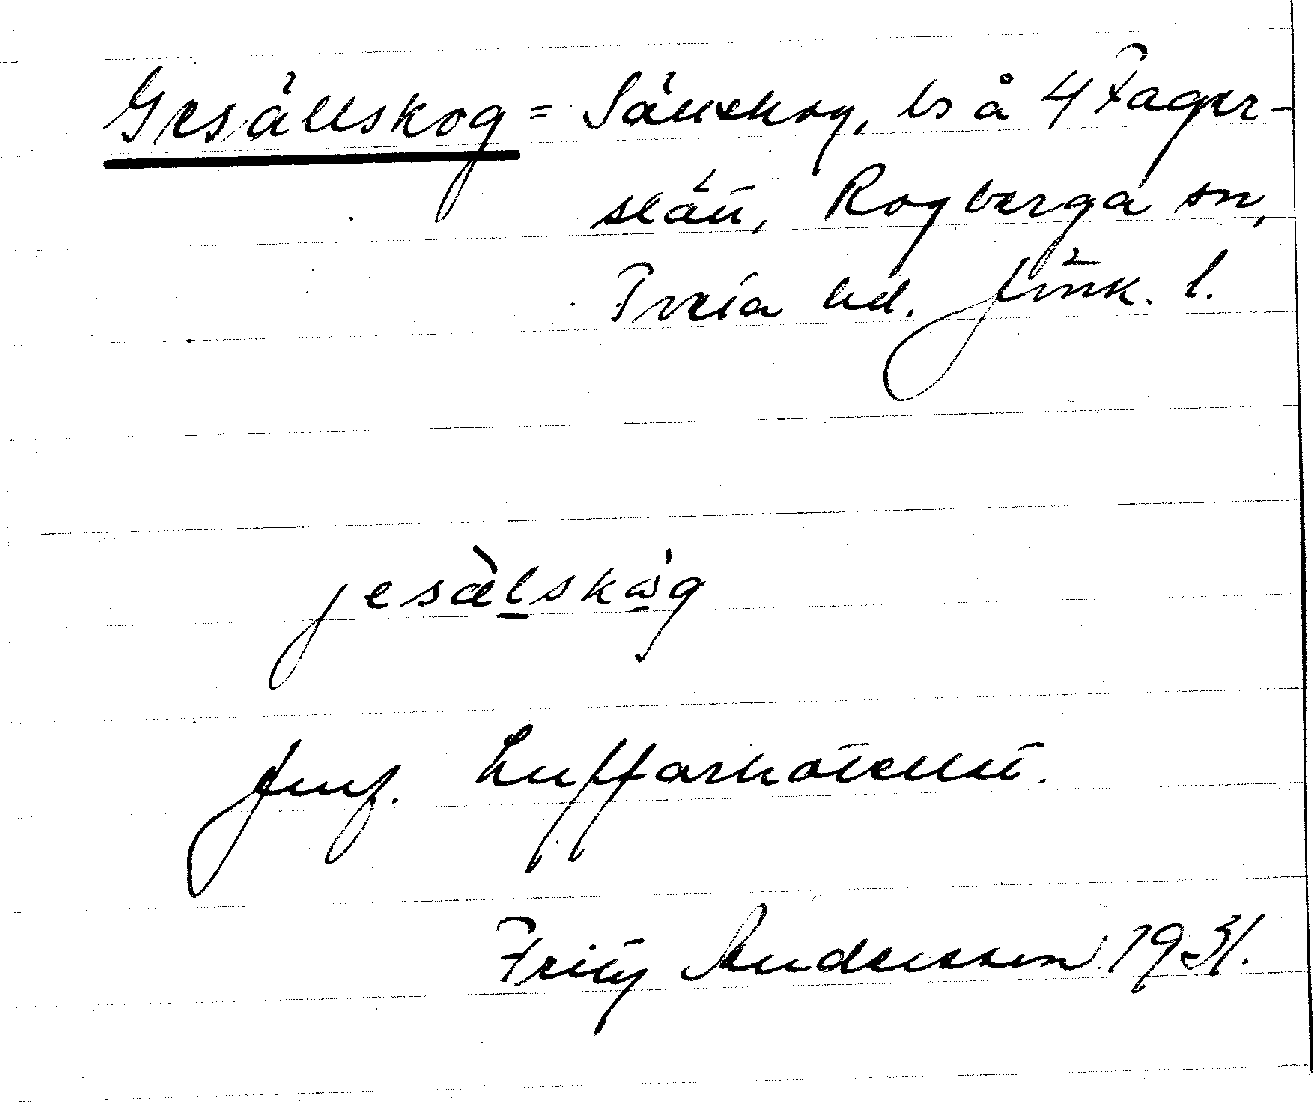 Gesällskog = Sällskog, ls å 4 Fager-
slätt, Rogberga sn,
Tveta hd. Jönk. l.
jesälskåg
Jmf. Luffarhotellet.
Fritz Andersson 1931.